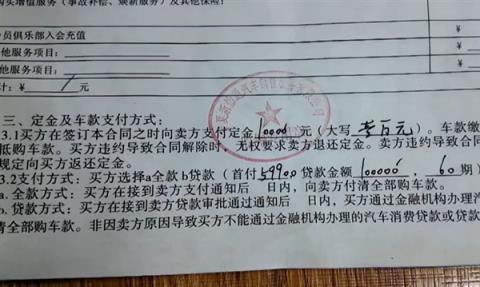 购买增值服务（事故补偿、焕新服务）及其他保险：
￥
会员俱乐部入会充值
￥
他服务项目：
他服务项目：
计：￥ 元
三、定金及车款支付方式：
3.1买方在签订本合同之时向卖方支付定金 10000 元（大写 壹万元）。车款缴
抵购车款。买方违约导致合同解除时，无权要求卖方退还定金。卖方违约导致合同
规定向买方返还定金。
3.2支付方式：买方选择a全款b贷款（首付59900贷款金额100000，60期）
a.全款方式：买方在接到卖方支付通知后 日内，向卖方付清全部购车款。
b.贷款方式：买方在接到卖方贷款审批通过通知后 日内，买方通过金融机构办
清全部购车款。非因卖方原因导致买方不能通过金融机构办理的汽车消费贷款或贷款